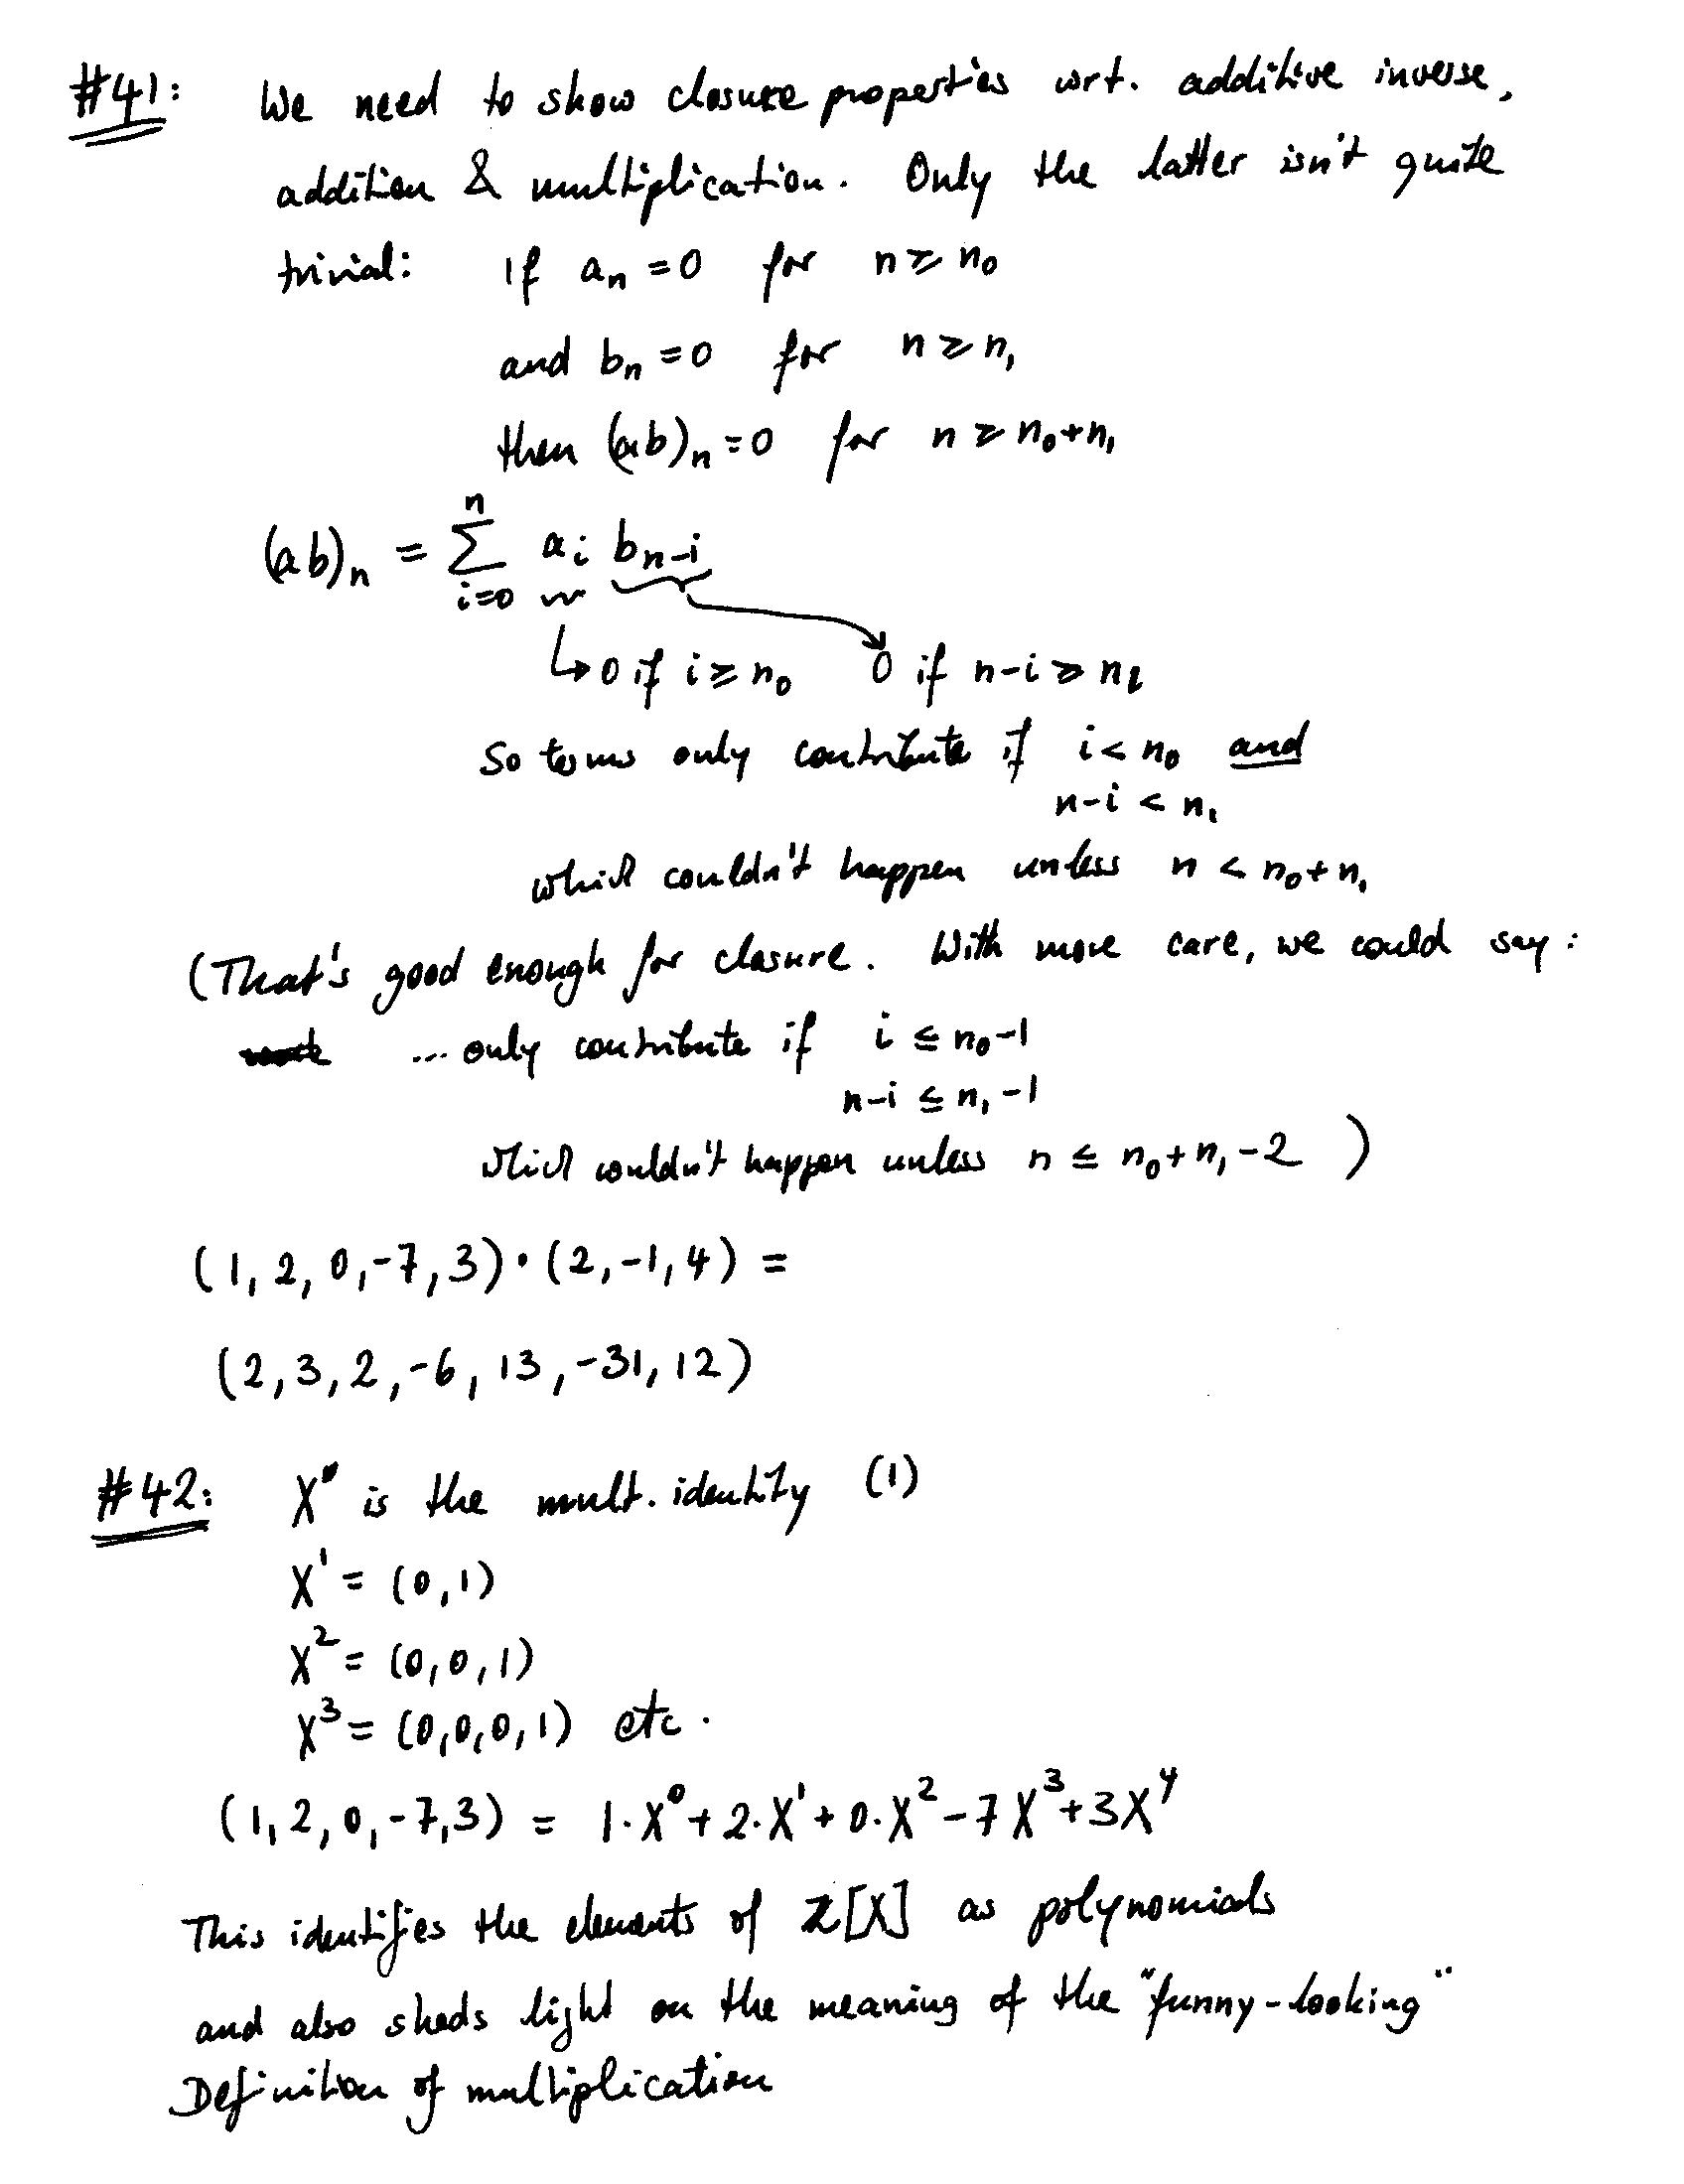 #41: We need to show closure properties wrt. additive inverse,
addition & multiplication. Only the latter isn't quite
trivial: If aₙ = 0 for n ≥ n₀
and bₙ = 0 for n ≥ n₁
then (ab)ₙ = 0 for n ≥ n₀+n₁
(ab)ₙ = ∑ᵢ₌₀ⁿ aᵢ bₙ₋ᵢ
↳ 0 if i ≥ n₀ 0 if n-i ≥ n₁
so terms only contribute if i < n₀ and
n-i < n₁
which couldn't happen unless n < n₀+n₁
(That's good enough for closure. With more care, we could say:
... only contribute if i ≤ n₀-1
n-i ≤ n₁-1
which couldn't happen unless n ≤ n₀+n₁-2 )
(1, 2, 0, -7, 3) · (2, -1, 4) =
(2, 3, 2, -6, 13, -31, 12)
#42: X⁰ is the mult. identity (1)
X¹ = (0, 1)
X² = (0, 0, 1)
X³ = (0, 0, 0, 1) etc.
(1, 2, 0, -7, 3) = 1·X⁰ + 2·X¹ + 0·X² - 7X³ + 3X⁴
This identifies the elements of ℤ[X] as polynomials
and also sheds light on the meaning of the "funny-looking"
Definition of multiplication